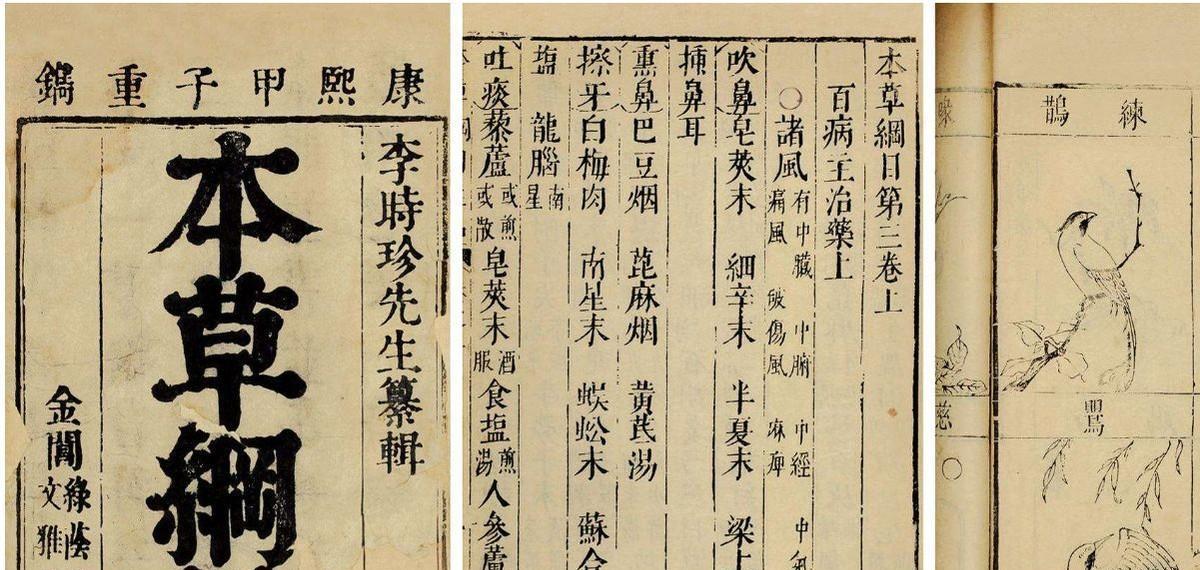 康熙甲子重鐫
李時珍先生纂輯
本草綱
金閶
綠蔭
文雅
本草綱目第三卷上
百病主治藥上
○諸風 有中臟 中腑 中經 中氣
痛風 破傷風 麻痺
吹鼻皂莢末 細辛末 半夏末 梁上
揷鼻耳
熏鼻巴豆烟 蓖麻烟 黃芪湯
擦牙白梅肉 南星末 蜈蚣末 蘇合
塩 龍腦南星
吐痰藜蘆或煎或散 皂莢末酒服 食塩煎湯 人參蘆
練鵲
鸎